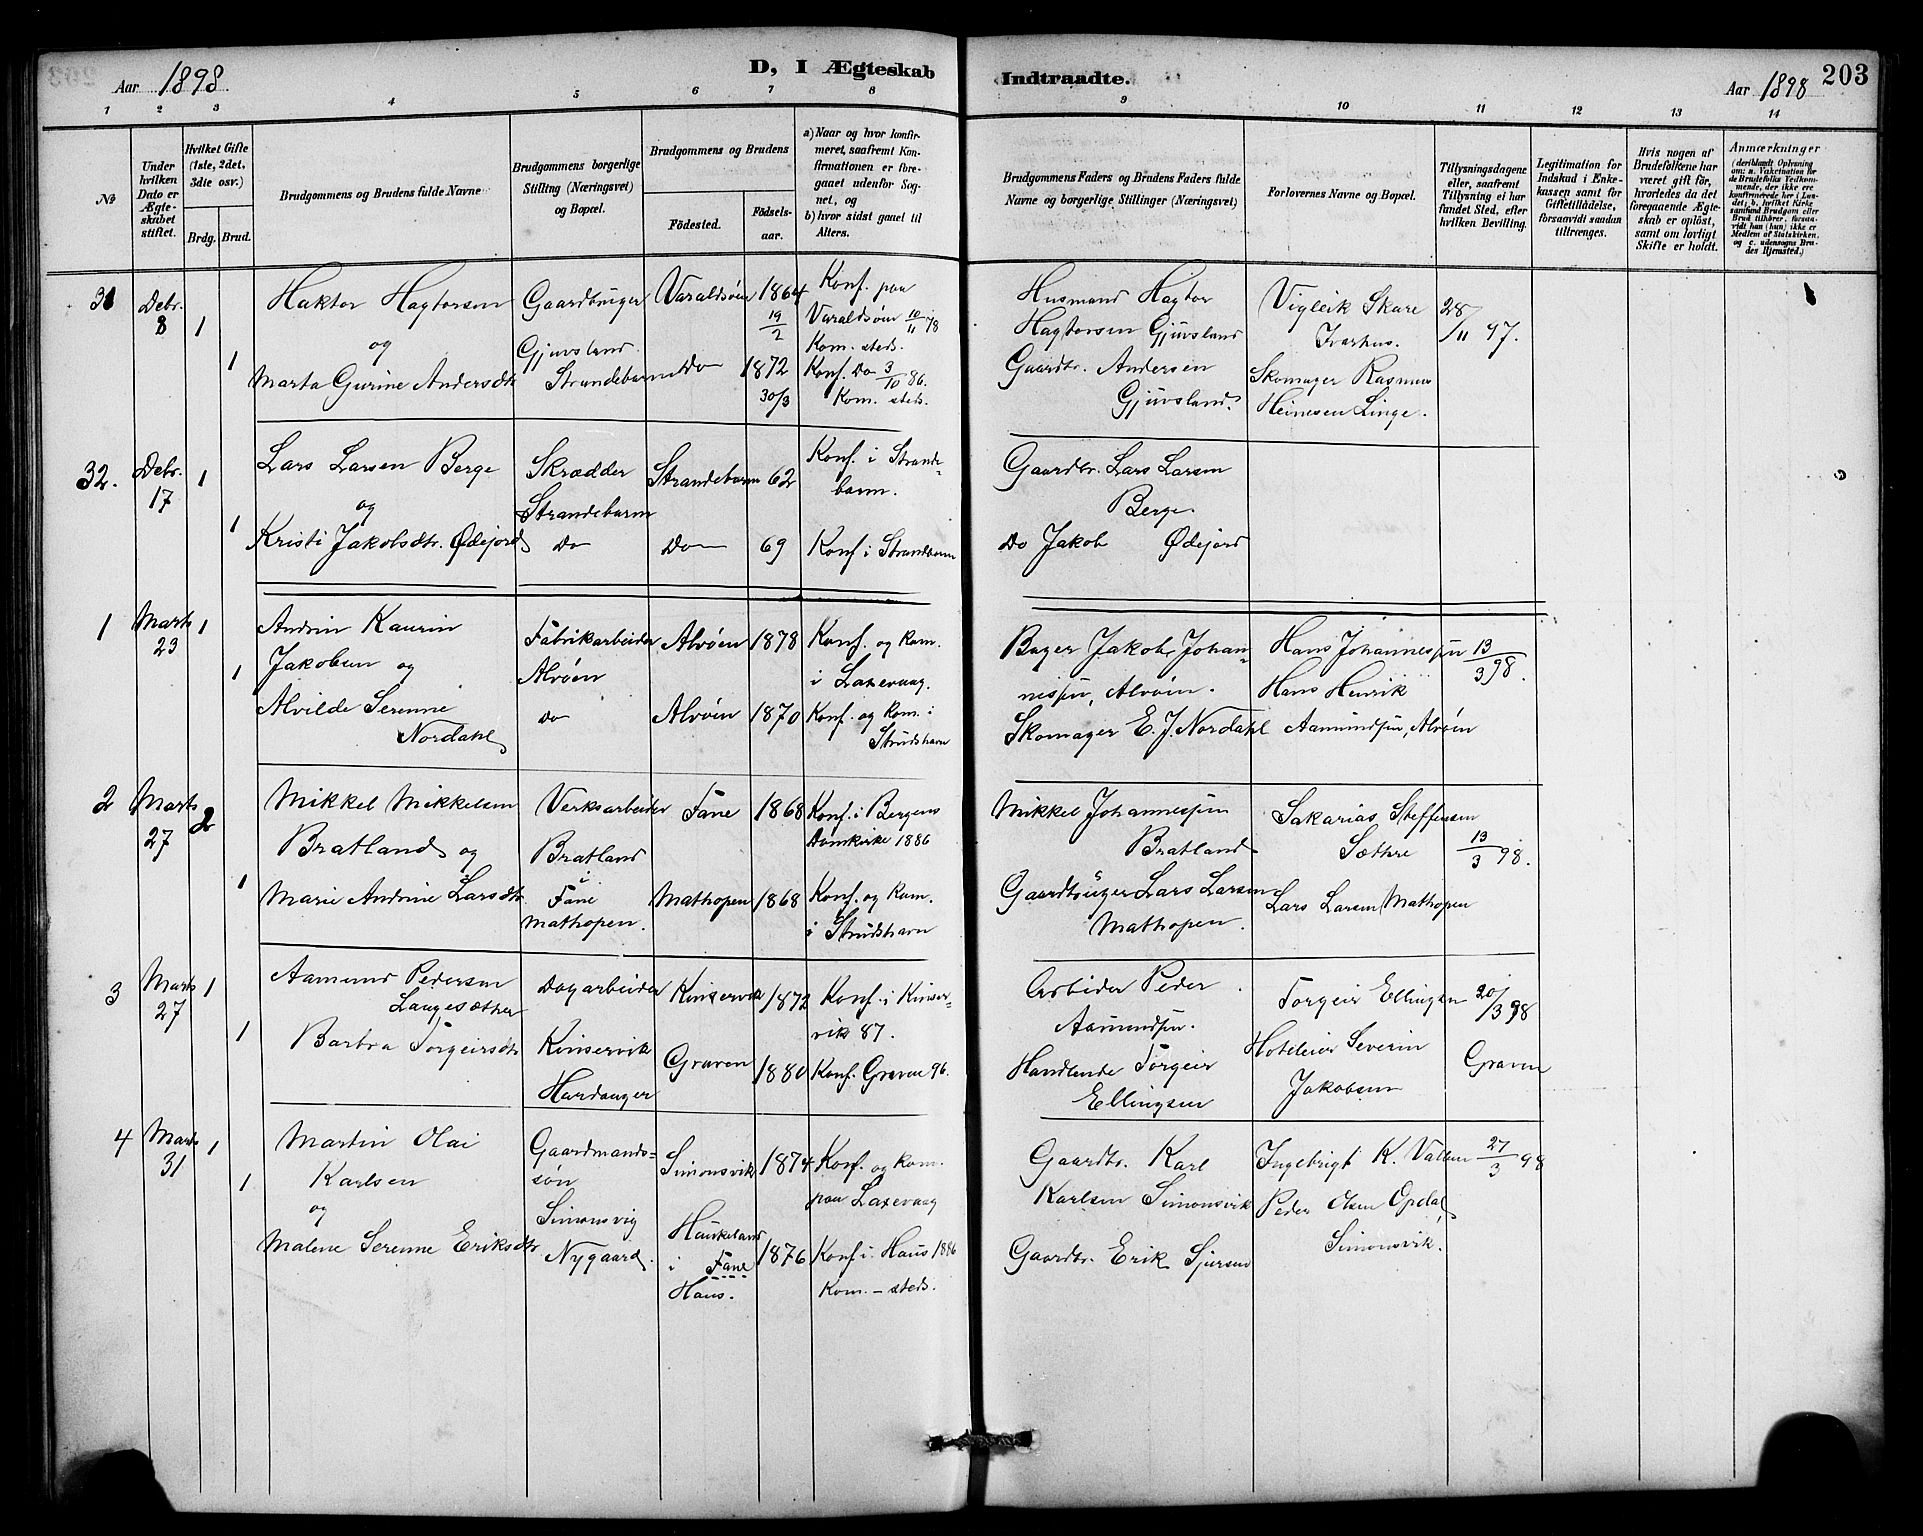 D, I Ægteskab Indtraadte.
203
Aar 1898
Aar 1898
1 2 3 4 5 6 7 8 9 10 11 12 13 14
№
Under hvilken Dato er Ægteskabet stiftet.
Hvilket Gifte (1ste, 2det, 3die osv.)
Brdg. Brud.
Brudgommens og Brudens fulde Navne
Brudgommens borgerlige Stilling (Næringsvei) og Bopæl.
Brudgommens og Brudens
Födested.
Födsels-aar.
a) Naar og hvor konfirmeret, saafremt Konfirmationen er foregaaet udenfor Sognet, og
b) hvor sidst gaaet til Alters.
Brudgommens Faders og Brudens Faders fulde Navne og borgerlige Stillinger (Næringsvei)
Forlovernes Navne og Bopæl.
Tillysningsdagene eller, saafremt Tillysning ei har fundet Sted, efter hvilken Bevilling.
Legitimation for Indskud i Enkekassen samt for Giftetilladelse, forsaavidt saadan tiltrænges.
Hvis nogen af Brudefolkene har været gift för, hvorledes da det foregaaende Ægteskab er oplöst, samt om lovligt Skifte er holdt.
Anmærkninger
31 Debr. 8 1 1
Haktor Hagtorsen
og
Marta Gurine Andersdtr
Gaardbruger
Gjuvsland
Strandebarm
Varaldsöen 1864 19/2
Do 1872 30/3
Konf. paa
Varaldsöen 10/11 78
Kom. steds.
Konf. Do 3/10 86.
Kom. steds.
Husmand Hagtor
Hagtorsen Gjuvsland
Gaardbr. Andersen
Gjuvsland.
Vigleik Skare
Ivarhus.
Skomager Rasmus
Heinesen Linge.
28/11 97.
32. Debr. 17 1 1
Lars Larsen Berge
og
Kristi Jakobsdtr. Ødejord
Skrædder
Strandebarm
Do
Strandebarm 62
Do 69
Konf. i Strandebarm.
Konf. i Strandbarm
Gaardbr. Lars Larsen
Berge
Do Jakob Ødejord
1 Marts 23 1 1
Andrin Kaurin
Jakobsen og
Alvilde Serenne
Nordahl
Fabrikarbeider
Alvöen
do
Alvöen 1878
Alvöen 1870
Konf. og Kom.
i Laxevaag.
Konf. og Kom. i
Strudshavn
Bager Jakob Johannesen, Alvöen.
Skomager E. J. Nordahl
Hans Johannesen
Hans Henrik
Aamundsen, Alvöen
13/3 98.
2 Marts 27 2 1
Mikkel Mikkelsen
Bratland og
Marie Andrine Larsdtr
Verksarbeider
Bratland
i Fane
Mathopen.
Fane 1868
Mathopen 1868
Konf. i Bergens
Domkirke 1886
Konf. og Kom.
i Strudshavn
Mikkel Johannesen
Bratland
Gaardbruger Lars Larsen
Mathopen.
Sakarias Steffensen
Sæthre
Lars Larsen Mathopen
13/3 98.
3 Marts 27 1 1
Aamund Pedersen
Langesæther
Barbra Torgeirsdtr
Dagarbeider
Kinservik
Hardanger
Kinservik 1872
Graven 1880
Konf. i Kinservik 87.
Konf. Graven 96.
Arbeider Peder
Aamundsen.
Handlende Torgeir
Ellingsen
Torgeir Ellingsen
Hoteleier Severin
Jakobsen
20/3 98
Graven
4 Marts 31 1 1
Martin Olai
Karlsen
og
Malene Serenne Eriksdtr
Gaardmandssön
Simonsvig
Nygaard.
Simonsvik 1874
Haukeland
i Fane
Haus. 1876
Konf. og Kom.
paa Laxevaag
Konf. i Haus
Kom. - steds.
Gaardbr. Karl
Karlsen Simonsvik
Gaardbr. Erik Sjursen
Ingebrigt K. Vallem
Peder Olsen Opdal
Simonsvik.
27/3 98